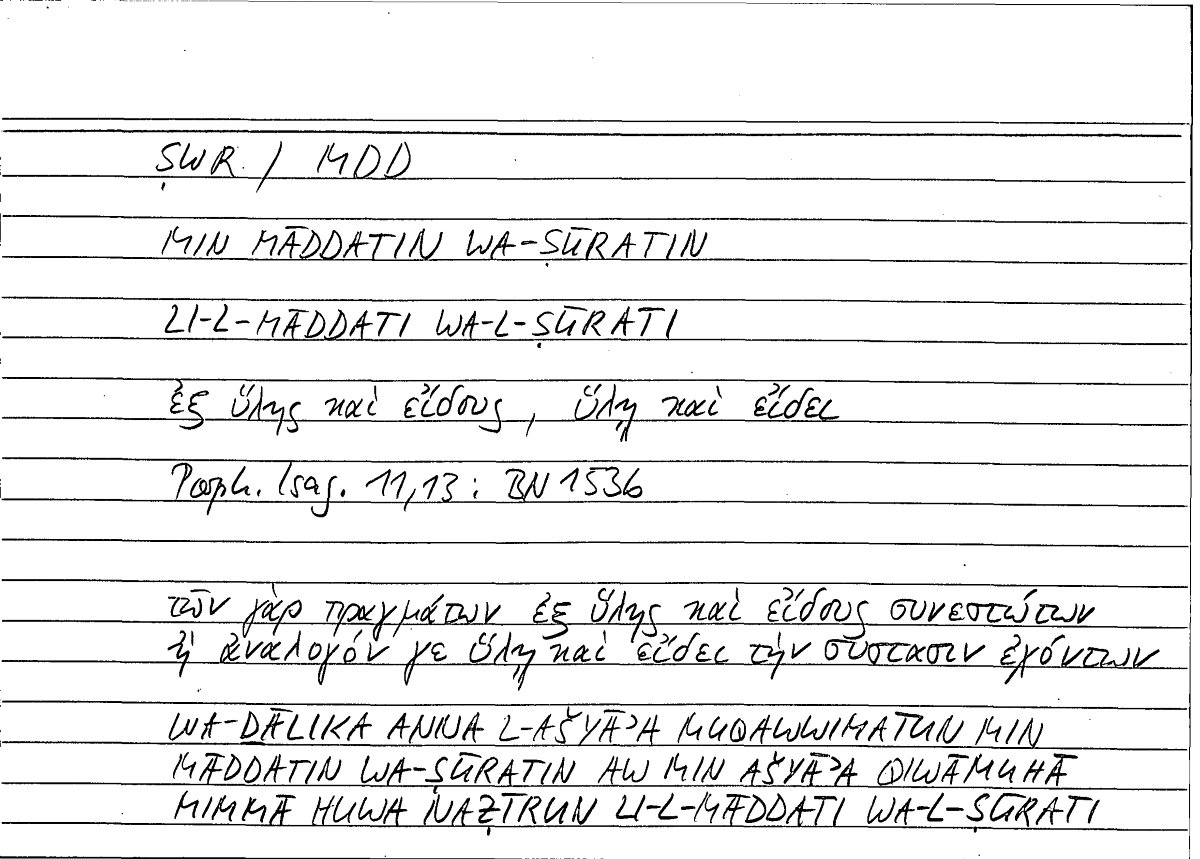 ṢWR / MDD
MIN MĀDDATIN WA-ṢŪRATIN
LI-L-MĀDDATI WA-L-ṢŪRATI
ἐξ ὕλης καὶ εἴδους, ὕλῃ καὶ εἴδει
Porph. Isag. 11,13 : BN 1536
τῶν γὰρ πραγμάτων ἐξ ὕλης καὶ εἴδους συνεστώτων
ἢ ἀναλογόν γε ὕλῃ καὶ εἴδει τὴν σύστασιν ἐχόντων
WA-ḎĀLIKA ANNA L-AŠYĀʾA MUQAWWIMATUN MIN
MĀDDATIN WA-ṢŪRATIN AW MIN AŠYĀʾA QIWĀMUHĀ
MIMMĀ HUWA NAẒĪRUN LI-L-MĀDDATI WA-L-ṢŪRATI